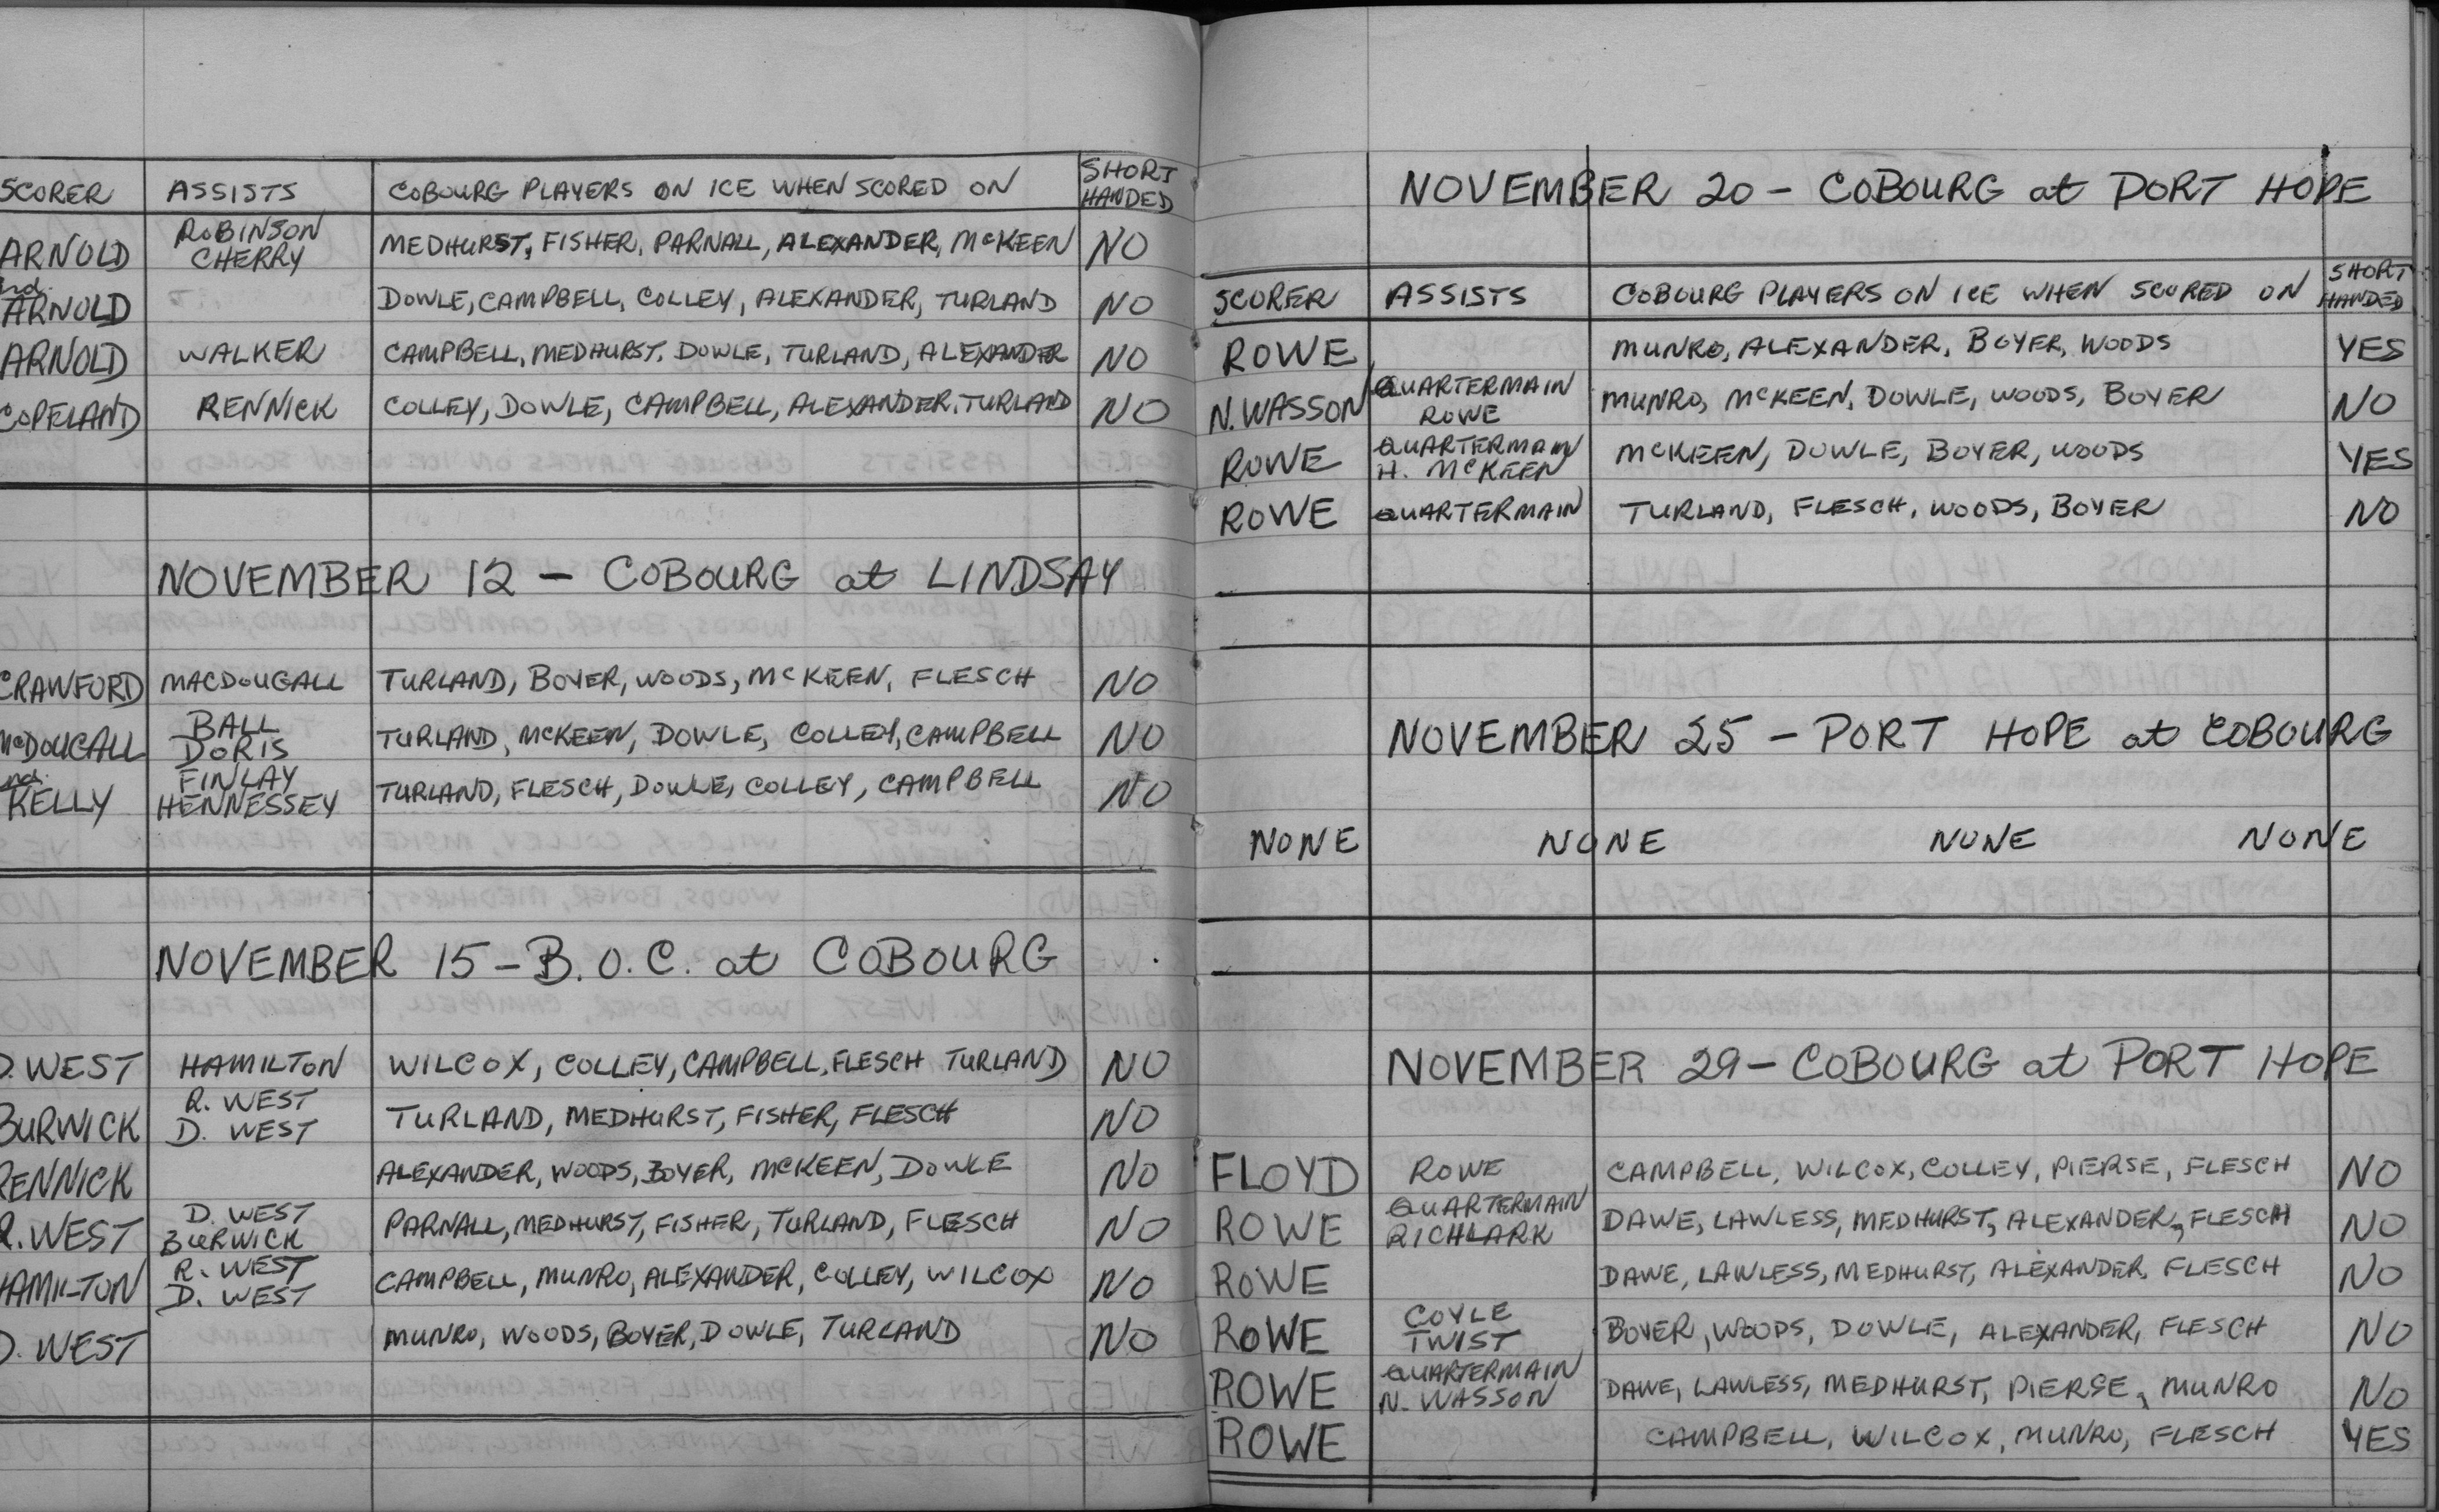 SCORER ASSISTS COBOURG PLAYERS ON ICE WHEN SCORED ON SHORT HANDED
ARNOLD ROBINSON CHERRY MEDHURST, FISHER, PARNALL, ALEXANDER, McKEEN NO
ARNOLD DOWLE, CAMPBELL, COLLEY, ALEXANDER, TURLAND NO
ARNOLD WALKER CAMPBELL, MEDHURST, DOWLE, TURLAND, ALEXANDER NO
COPELAND RENNICK COLLEY, DOWLE, CAMPBELL, ALEXANDER, TURLAND NO
NOVEMBER 12 - COBOURG at LINDSAY
CRAWFORD MACDOUGALL TURLAND, BOYER, WOODS, McKEEN, FLESCH NO
McDOUGALL BALL DORIS TURLAND, McKEEN, DOWLE, COLLEY, CAMPBELL NO
KELLY FINLAY HENNESSEY TURLAND, FLESCH, DOWLE, COLLEY, CAMPBELL NO
NOVEMBER 15 - B.O.C. at COBOURG
D. WEST HAMILTON WILCOX, COLLEY, CAMPBELL, FLESCH TURLAND NO
BURWICK R. WEST D. WEST TURLAND, MEDHURST, FISHER, FLESCH NO
RENNICK ALEXANDER, WOODS, BOYER, McKEEN, DOWLE NO
R. WEST D. WEST BURWICK PARNALL, MEDHURST, FISHER, TURLAND, FLESCH NO
HAMILTON R. WEST D. WEST CAMPBELL, MUNRO, ALEXANDER, COLLEY, WILCOX NO
D. WEST MUNRO, WOODS, BOYER, DOWLE, TURLAND NO
NOVEMBER 20 - COBOURG at PORT HOPE
SCORER ASSISTS COBOURG PLAYERS ON ICE WHEN SCORED ON SHORT HANDED
ROWE MUNRO, ALEXANDER, BOYER, WOODS YES
N. WASSON QUARTERMAIN ROWE MUNRO, McKEEN, DOWLE, WOODS, BOYER NO
ROWE QUARTERMAIN H. McKEEN McKEEN, DOWLE, BOYER, WOODS YES
ROWE QUARTERMAIN TURLAND, FLESCH, WOODS, BOYER NO
NOVEMBER 25 - PORT HOPE at COBOURG
NONE NONE NONE NONE
NOVEMBER 29 - COBOURG at PORT HOPE
FLOYD ROWE CAMPBELL, WILCOX, COLLEY, PIERSE, FLESCH NO
ROWE QUARTERMAIN RICHLARK DAWE, LAWLESS, MEDHURST, ALEXANDER, FLESCH NO
ROWE DAWE, LAWLESS, MEDHURST, ALEXANDER, FLESCH NO
ROWE COYLE TWIST BOYER, WOODS, DOWLE, ALEXANDER, FLESCH NO
ROWE QUARTERMAIN N. WASSON DAWE, LAWLESS, MEDHURST, PIERSE, MUNRO NO
ROWE CAMPBELL, WILCOX, MUNRO, FLESCH YES